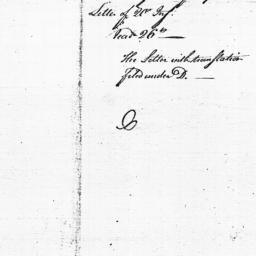 Letter of 20th Inst.
read 26th —
The Letter with translation
filed under D. —